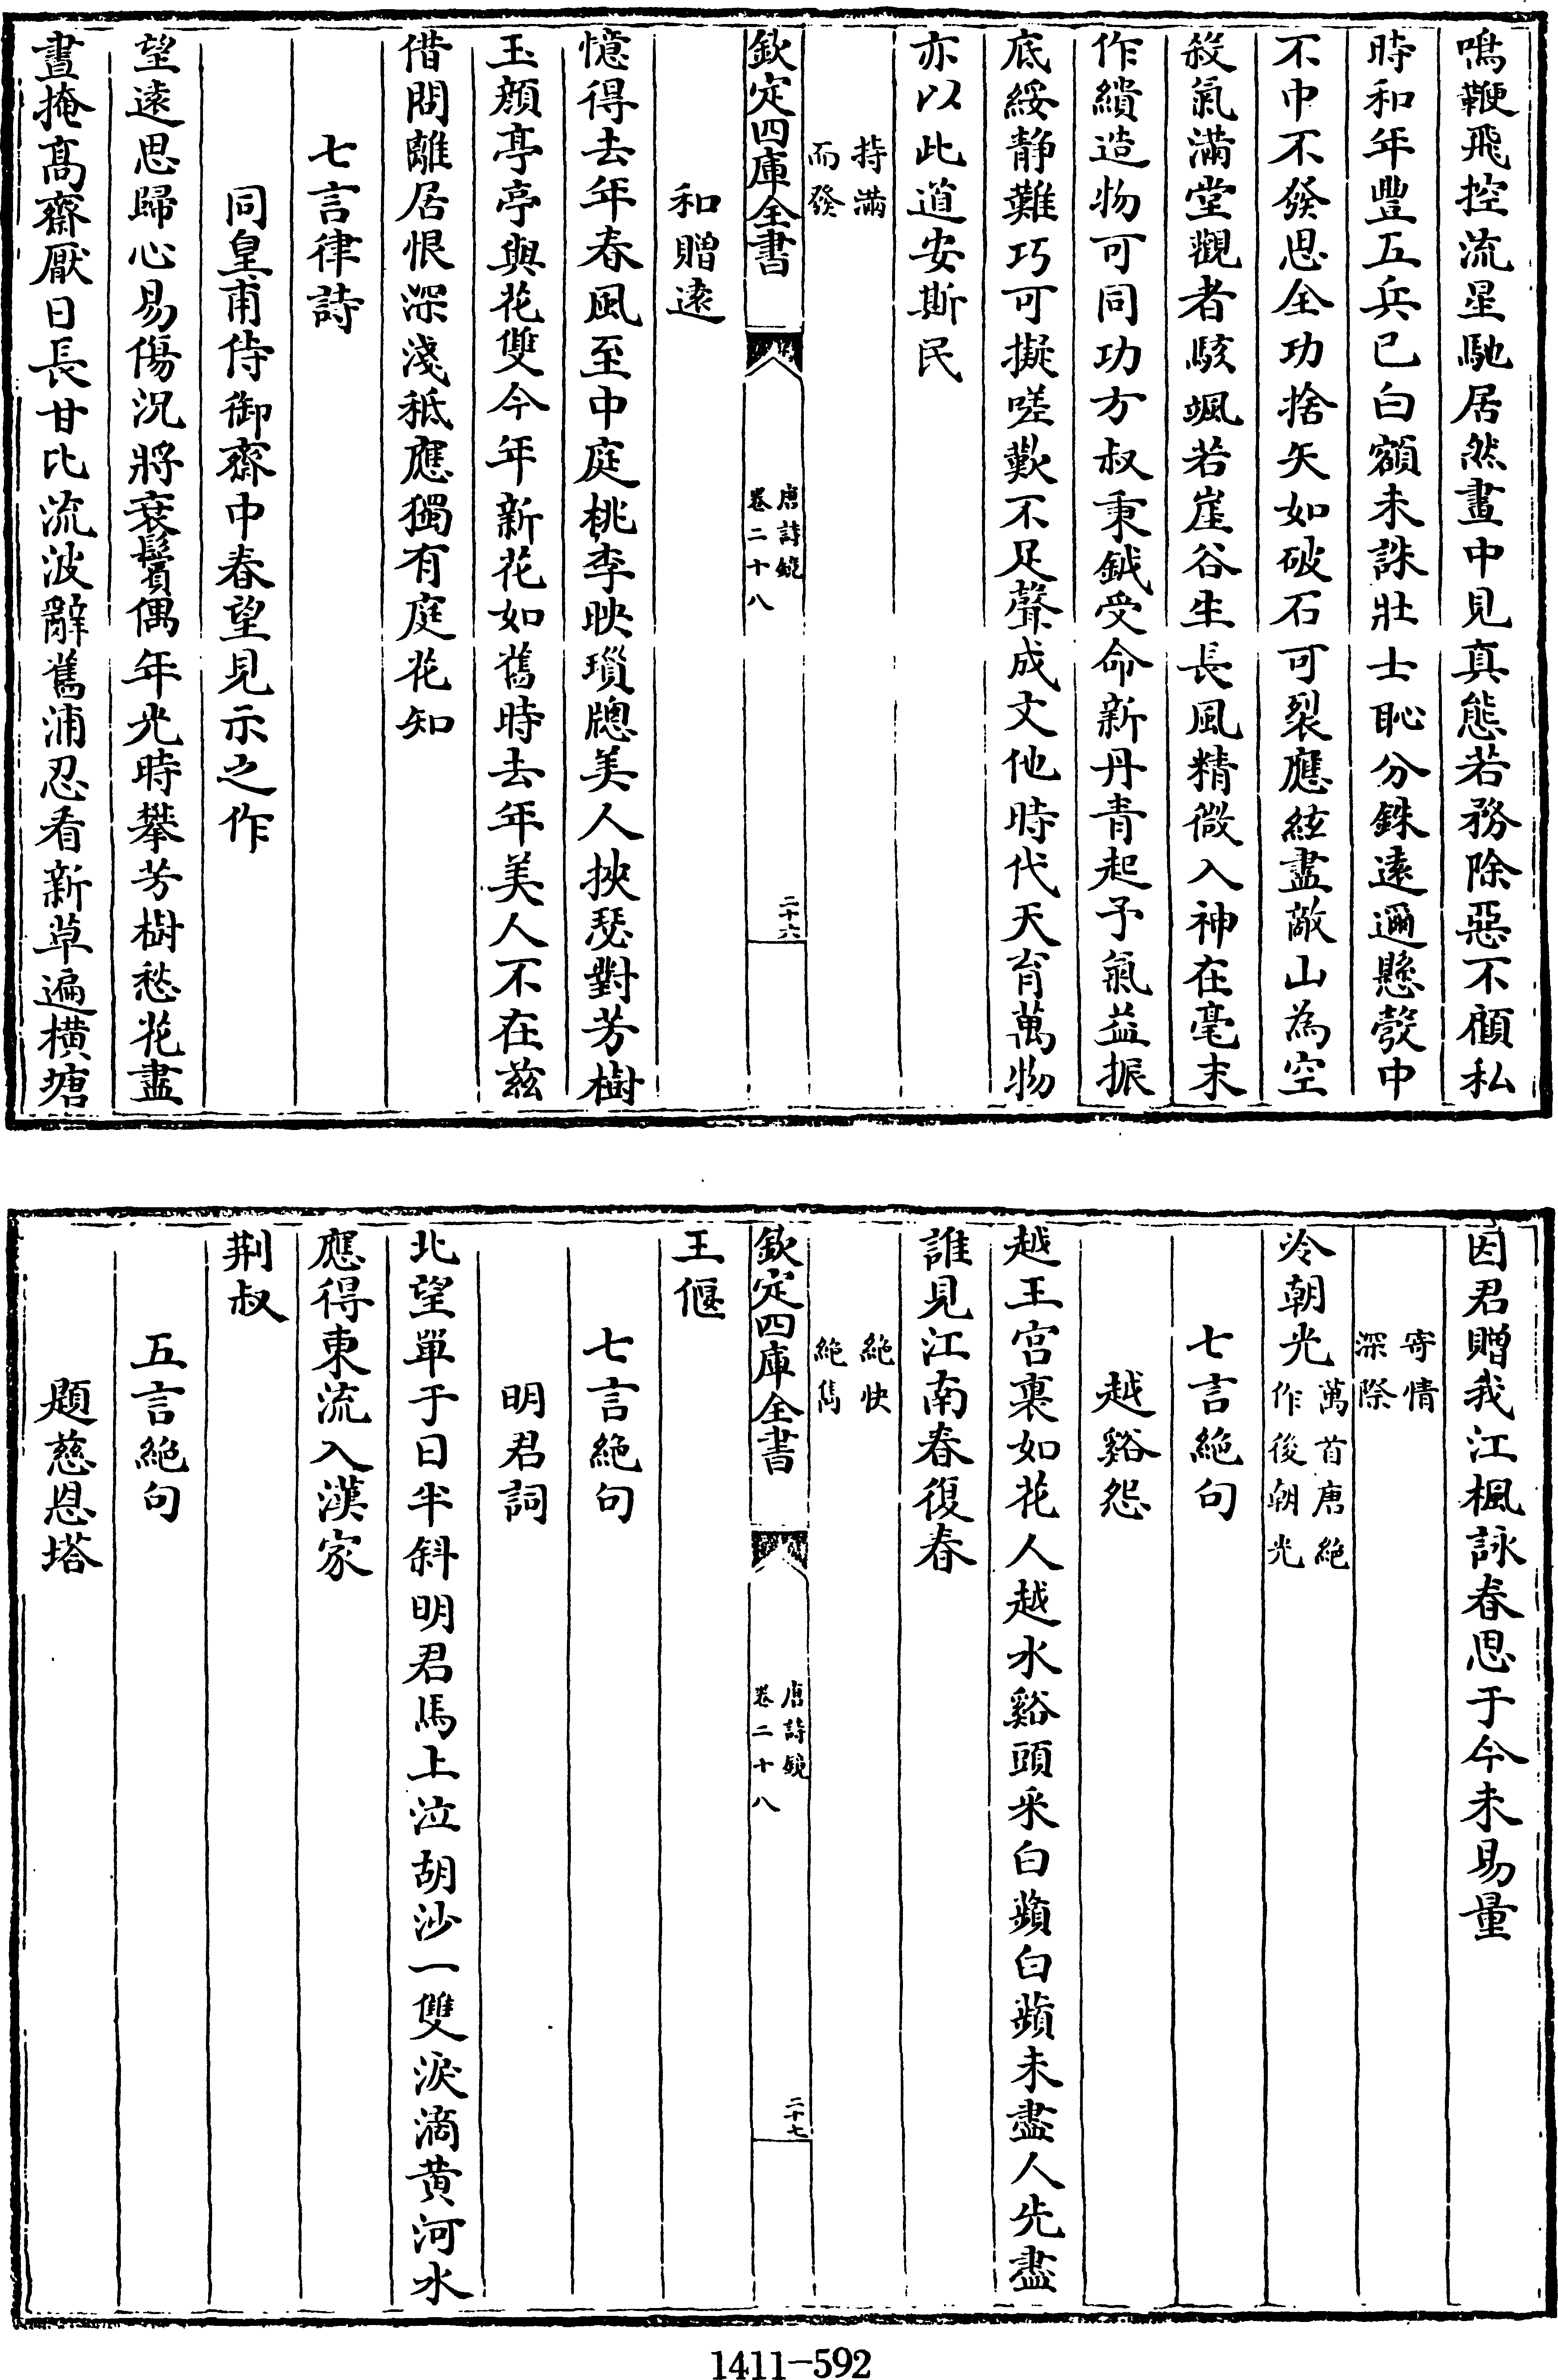 鳴鞭飛控流星馳居然畫中見真態若務除惡不顧私
時和年豐五兵已白額未誅壯士恥分銖遠邇懸彀中
不中不發思全功捨矢如破石可裂應絃盡敵山為空
殺氣滿堂觀者駭颯若崖谷生長風精微入神在毫末
作繢造物可同功方叔秉鉞受命新丹青起予氣益振
底綏静難巧可擬嗟歎不足聲成文他時代天育萬物
亦以此道安斯民
持滿
而發
欽定四庫全書
唐詩鏡
卷二十八
二十六
和贈逺
憶得去年春風至中庭桃李映瑣牕美人挾瑟對芳樹
玉顔亭亭與花雙今年新花如舊時去年美人不在兹
借問離居恨深淺秖應獨有庭花知
七言律詩
同皇甫侍御齋中春望見示之作
望逺思歸心易傷況將衰鬢偶年光時攀芳樹愁花盡
晝掩髙齋厭日長甘比流波辭舊浦忍看新草遍橫塘
因君贈我江楓詠春思于今未易量
寄情
深際
冷朝光
萬首唐絶
作後朝光
七言絶句
越谿怨
越王宫裏如花人越水谿頭采白蘋白蘋未盡人先盡
誰見江南春復春
絶快
絶雋
欽定四庫全書
唐詩鏡
卷二十八
二十七
王偃
七言絶句
明君詞
北望單于日半斜明君馬上泣胡沙一雙淚滴黄河水
應得東流入漢家
荆叔
五言絶句
題慈恩塔
1411-592